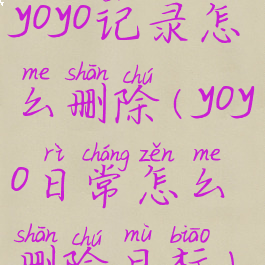 yoyo记录怎
me shān chú
么删除(yoy
rì cháng zěn me
o日常怎么
shān chú mù biāo
删除目标)